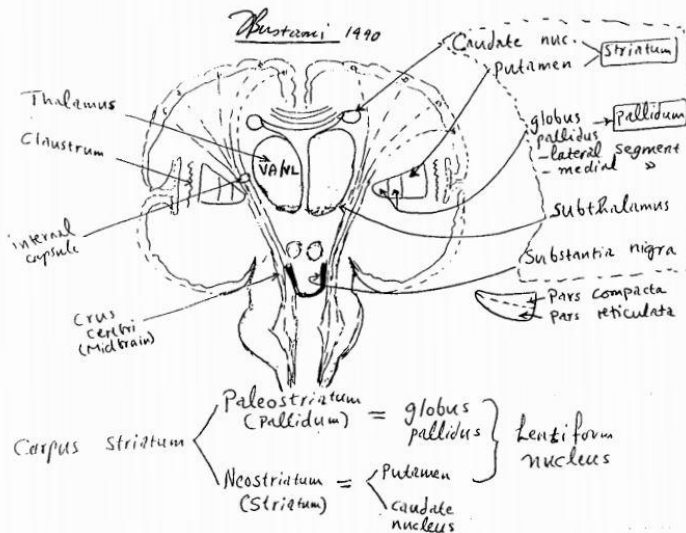 JBustami 1990
Caudate nuc.
Putamen
Striatum
Thalamus
Claustrum
VA/VL
globus
pallidus
pallidum
- lateral segment
- medial "
internal
capsule
Subthalamus
Substantia nigra
Crus
Cerebri
(Midbrain)
Pars compacta
Pars reticulata
Corpus Striatum
Paleostriatum
(Pallidum)
= globus
pallidus
Neostriatum
(Striatum)
= Putamen
caudate
nucleus
Lentiform
nucleus